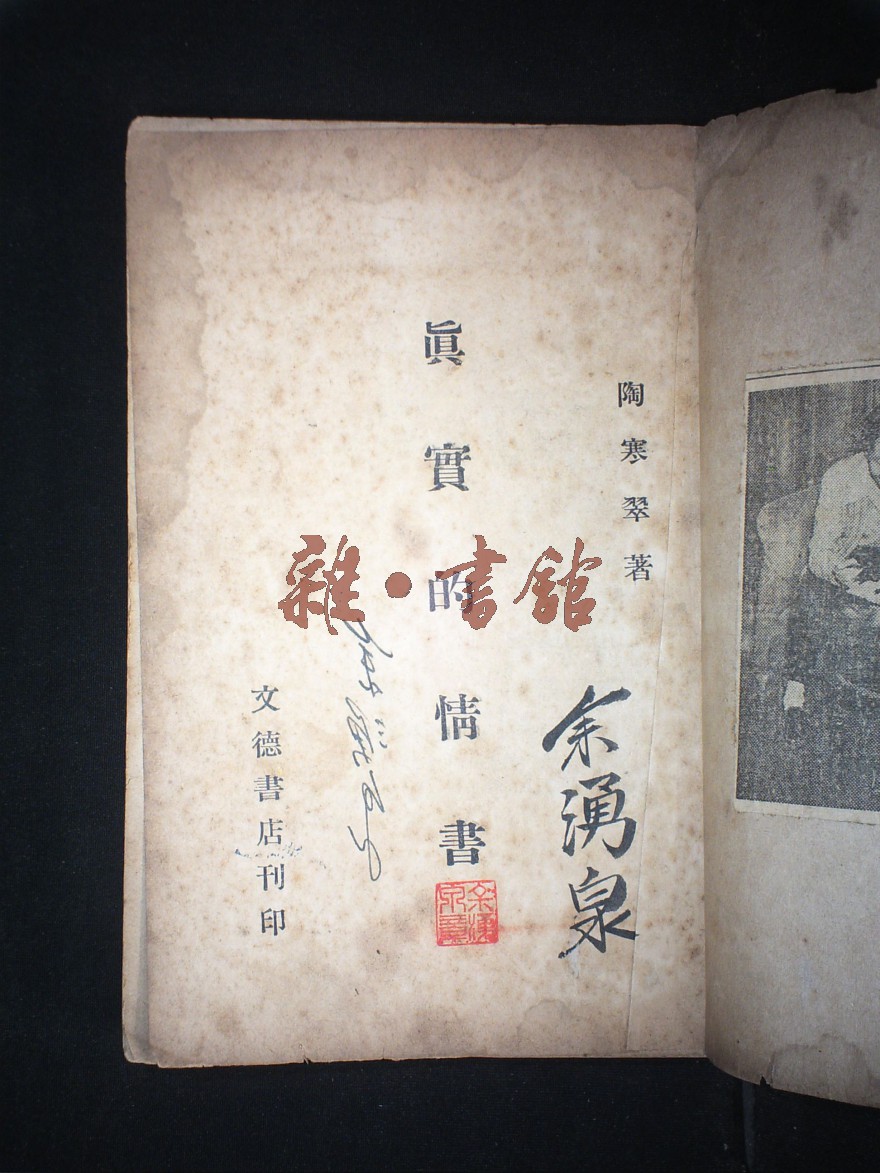 陶寒翠著
眞實的情書
文德書店刊印
余湧泉
余湧泉章
雜·書館